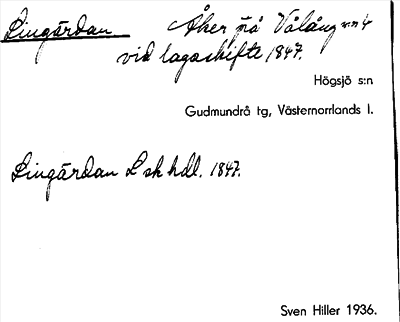 Lingärdan Åker på Vålång n:r 4
vid lagaskifte 1847.
Högsjö s:n
Gudmundrå tg, Västernorrlands l.
Lingärdan L sk hdl. 1847.
Sven Hiller 1936.